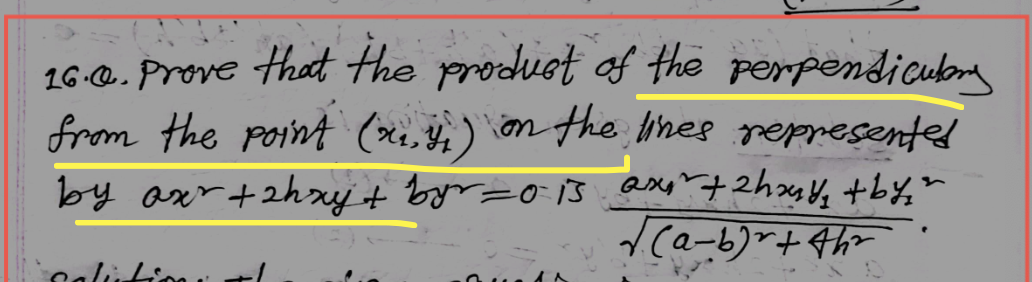 16.Q. Prove that the product of the perpendiculars
from the point (x₁, y₁) on the lines represented
by ax² + 2hxy + by² = 0 is (ax₁² + 2hx₁y₁ + by₁²) / √((a-b)² + 4h²).